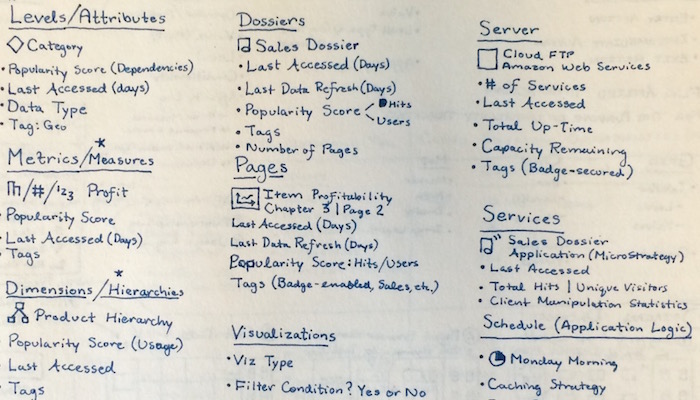 Levels/Attributes
Category
• Popularity Score (Dependencies)
• Last Accessed (days)
• Data Type
• Tag: Geo
Metrics/Measures*
/#/123 Profit
• Popularity Score
• Last Accessed (Days)
• Tags
Dimensions/Hierarchies*
Product Hierarchy
• Popularity Score (Usage)
• Last Accessed
• Tags
Dossiers
Sales Dossier
• Last Accessed (Days)
• Last Data Refresh (Days)
• Popularity Score < Hits
Users
• Tags
• Number of Pages
Pages
Item Profitability
Chapter 3 | Page 2
Last Accessed (Days)
Last Data Refresh (Days)
Popularity Score: Hits/Users
Tags (Badge-enabled, Sales, etc.)
Visualizations
• Viz Type
• Filter Condition? Yes or No
Server
Cloud FTP
Amazon Web Services
• # of Services
• Last Accessed
• Total Up-Time
• Capacity Remaining
• Tags (Badge-secured)
Services
Sales Dossier
Application (MicroStrategy)
• Last Accessed
• Total Hits | Unique Visitors
• Client Manipulation Statistics
Schedule (Application Logic)
• Monday Morning
• Caching Strategy